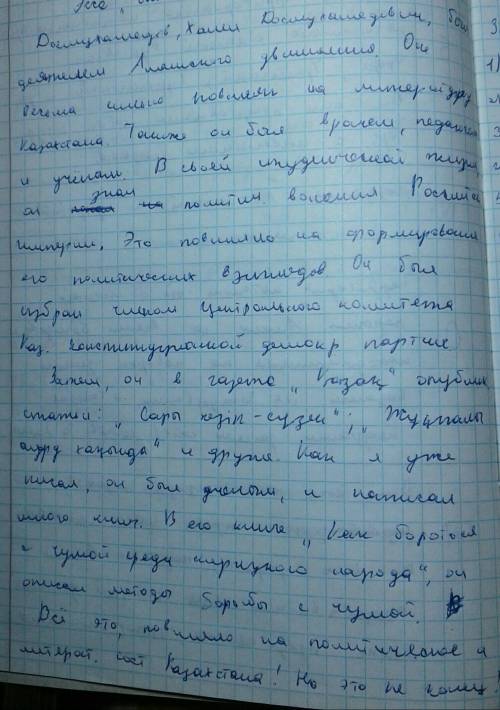 Досмухамедов, Халел Досмухамедович, был
деятелем Алашского движения. Он
весьма сильно повлиял на литературу
Казахстана. Также он был врачем, педагогом
и учёным. В своей студенческой жизни,
он знал политич волнения Российск
империи. Это повлияло на формирован
его политических взглядов Он был
избран членом Центрального комитета
Каз. конституционной демокр партии
Затем, он в газете „Қазақ" опублик
статьи: „Сары кезік - сүзек"; „Жұқпалы
ауру хақында" и другие. Как я уже
писал, он был учёным, и написал
много книг. В его книге „Как бороться
с чумой среди киргизского народа", он
описал методы борьбы с чумой.
Всё это, повлияло на политическое и
литерат. сост Казахстана! Но это не конец!
3
1)